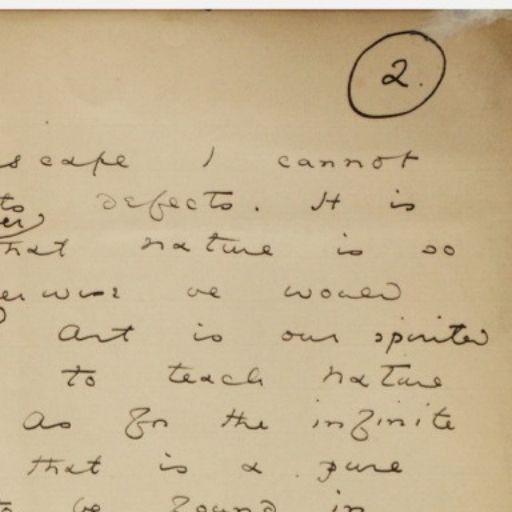 2.
scape I cannot
to defects. It is
er
hat nature is so
erwise we would
Art is our spirited
to teach nature
As for the infinite
that is a pure
to be found in